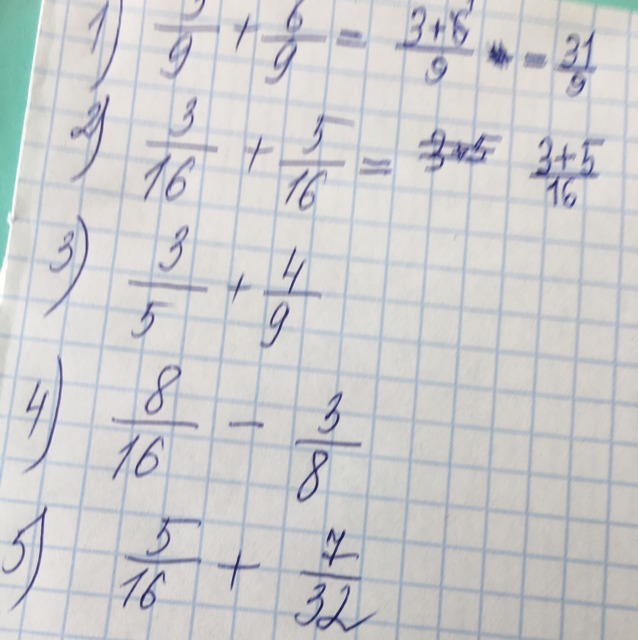 1) 3/9 + 6/9 = 3+6/9 = 31/9
2) 3/16 + 5/16 = 3+5 3+5/16
3) 3/5 + 4/9
4) 8/16 - 3/8
5) 5/16 + 7/32